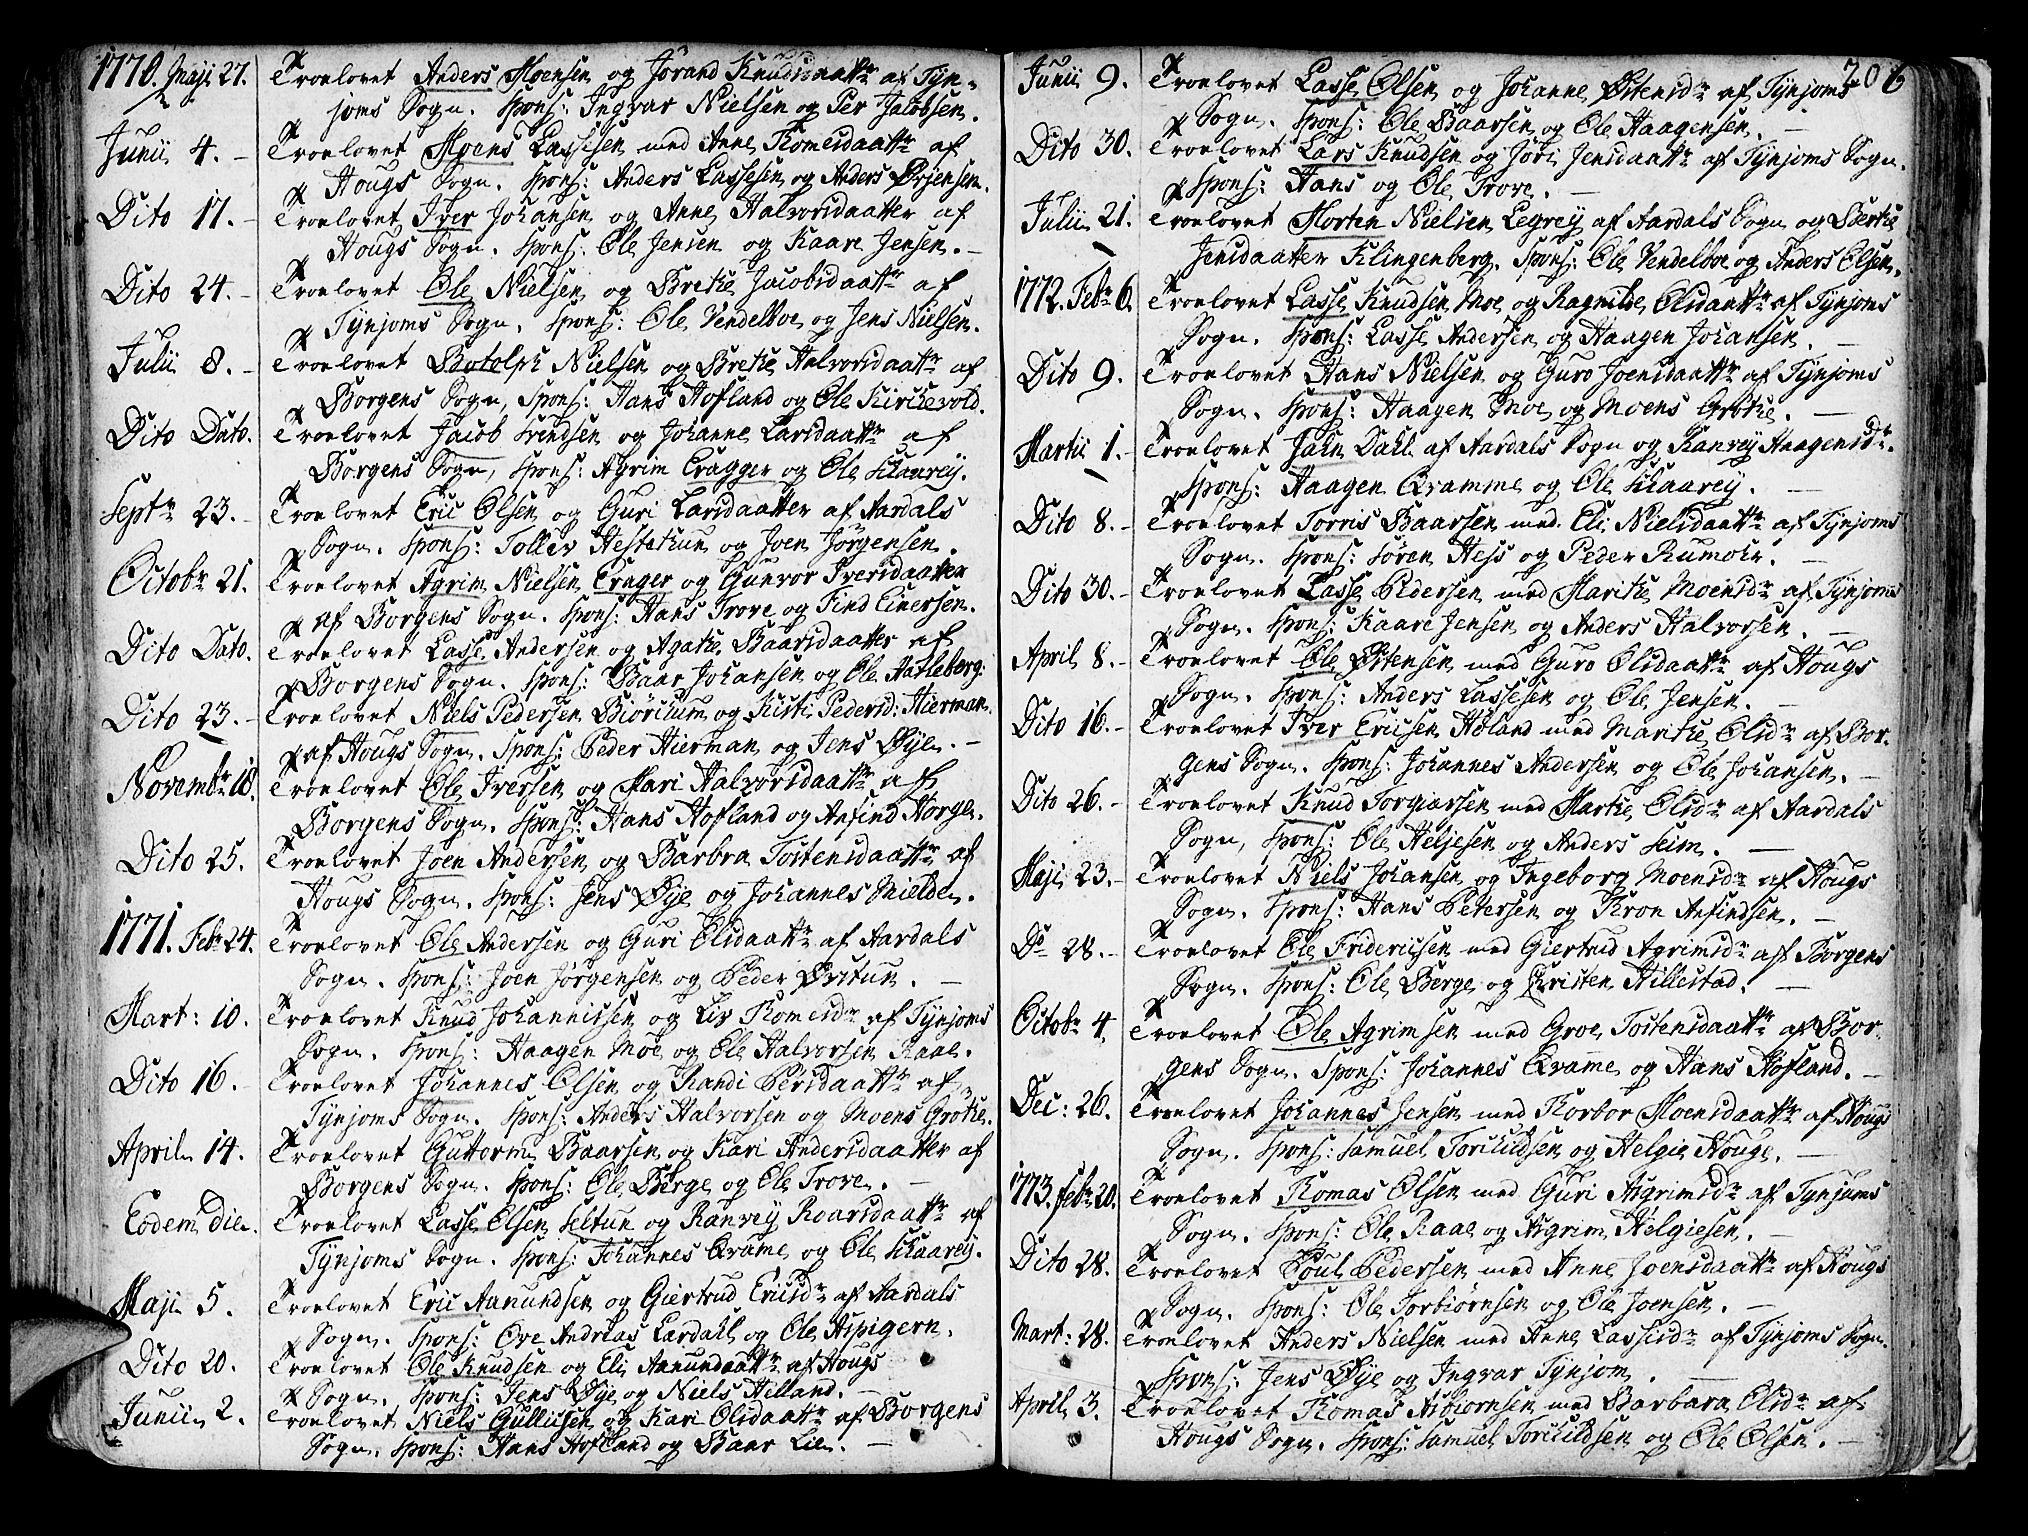 1770. Maji 27. Troelovet Anders Moensen og Jorand Knudsdaattr af Tyn-
joms Sogn. Spons: Ingvar Nielsen og Per Jacobsen.
Junii 4. - Troelovet Moens Lassesen med Anne Tomesdaattr af
Hougs Sogn. Spons: Anders Lassesen og Anders Ørjensen.
Dito 17. - Troelovet Iver Johansen og Anne Halvorsdaatter af
Hougs Sogn. Spons: Ole Jensen og Kaare Jensen. -
Dito 24. - Troelovet Ole Nielsen og Brethe Jacobsdaattr af
Tynjoms Sogn. Spons: Ole Vendelboe og Jens Nielsen.
Julii 8. - Troelovet Botolph Nielsen og Brethe Halvorsdaattr af
Borgens Sogn, Spons: Hans Hofland og Ole Kirchevold.
Dito Dato. Troelovet Jacob Svendsen og Johanne Larsdaattr af
Borgens Sogn, Spons: Agrim Eragger og Ole Skaarey.
Septr 23. - Troelovet Eric Olsen og Guri Larsdaatter af Aardals
Sogn. Spons: Tollev Hestethun og Joen Jørgensen.
Octobr 21. Troelovet Agrim Nielsen Erager og Gunvor Iversdaatter
af Borgens Sogn. Spons: Hans Trove og Find Einersen.
Dito Dato. Troelovet Lasse Andersen og Agathe Baarsdaatter af
Borgens Sogn. Spons: Baar Johansen og Ole Hatleberg.
Dito 23. - Troelovet Niels Pedersen Biørcum og Kisti Pedersd: Hierman.
af Hougs Sogn. Spons: Peder Hierman og Jens Øye. -
Novembr 18. Troelovet Ole Iversen og Mari Halvorsdaattr af
Borgens Sogn. Spons: Hans Hofland og Anfind Horge.
Dito 25. Troelovet Joen Andersen og Barbra Tostensdaattr af
Hougs Sogn. Spons: Jens Øye og Johannes Mielde.
1771. Febr 24. Troelovet Ole Andersen og Guri Olsdaattr af Aardals
Sogn. Spons: Joen Jørgensen og Peder Øvstun. -
Mart: 10. Troelovet Knud Johannissen og Liv Tomesdr af Tynjoms
Sogn. Spons: Haagen Moe og Ole Halvorsen Raae.
Dito 16. - Troelovet Johannes Olsen og Randi Persdaattr af
Tynjoms Sogn. Spons: Anders Halvorsen og Moens Grothe.
April 14. Troelovet Guttorm Baarsen og Kari Andersdaatter af
Borgens Sogn. Spons: Ole Berge og Ole Trove. -
Eodem die. Troelovet Lasse Olsen Seltun og Ranvey Roarsdaattr af
Tynjoms Sogn. Spons: Johannes Qvame og Ole Skaarey.
Maji 5. Troelovet Eric Aamundsen og Giertrud Ericsdr af Aardals
Sogn. Spons: Ove Andreas Lardahl og Ole Aspigern.
Dito 20. Troelovet Ole Knudsen og Eli Aamundaattr af Hougs
Sogn. Spons: Jens Øye og Niels Helland. -
Junii 2. Troelovet Niels Gullicsen og Kari Olsdaattr af Borgens
Sogn. Spons: Hans Hofland og Baar Lie. -
206
Junii 9. Troelovet Lasse Olsen og Johanne Østensdr af Tynjoms
Sogn. Spons: Ole Baarsen og Ole Haagensen. -
Dito 30. Troelovet Lars Knudsen og Jøri Jensdaattr af Tynjoms Sogn.
Spons: Hans og Ole Trove. -
Julii 21. Troelovet Morten Nielsen Legrey af Aardals Sogn og Dærthe
Jensdaatter Klingenberg. Spons: Ole Vendelboe og Anders Olsen.
1772. Febr 6. Troelovet Lasse Knudsen Moe og Ragnilde Olsdaattr af Tynjoms
Sogn. Spons: Lasse Andersen og Haagen Johansen. -
Dito 9. Troelovet Hans Nielsen og Guro Joensdaattr af Tynjoms
Sogn. Spons: Haagen Moe og Moens Grothe. -
Martii 1. - Troelovet Jahn Dahl af Aardals Sogn og Ranvey Haagensdr.
Spons: Haagen Qvamme og Ole Skaarey. -
Dito 8. - Troelovet Torris Baarsen med Eli Nielsdaattr af Tynjoms
Sogn. Spons: Søren Hess og Peder Rumohr. -
Dito 30. - Troelovet Lasse Pedersen med Marithe Moensdr af Tynjoms
Sogn. Spons: Kaare Jensen og Anders Halvorsen. -
April 8. - Troelovet Ole Østensen med Guro Olsdaattr af Hougs
Sogn. Spons: Anders Lassesen og Ole Jensen. -
Dito 16. - Troelovet Iver Ericsen Høland med Marithe Olsdr af Bor-
gens Sogn. Spons: Johannes Andersen og Ole Johansen. -
Dito 26. - Troelovet Knud Torgiersen med Marthe Olsdr af Aardals
Sogn, Spons: Ole Heljesen og Anders Seim. -
Maji 23. - Troelovet Niels Johansen og Ingeborg Moensdr af Hougs
Sogn. Spons: Hans Petersen og Tron Anfindsen. -
Do 28. - Troelovet Ole Fridericsen med Giertrud Agrimsdr af Borgens
Sogn. Spons: Ole Berge og Cristen Hillestad. -
Octobr 4. Troelovet Ole Agrimsen med Groe Tostensdaattr af Bor-
gens Sogn. Spons: Johannes Qvame og Hans Hofland. -
Dec: 26. Troelovet Johannes Jensen med Torbor Moensdaattr af Hougs
Sogn. Spons: Samuel Torchildsen og Helgie Houge. -
1773. Febr 20. Troelovet Tomas Olsen med Guri Agrimsdr af Tynjoms
Sogn. Spons: Ole Raae og Asgrim Helgiesen. -
Dito 28. Troelovet Poul Pedersen med Anne Joensdaattr af Hougs
Sogn. Spons: Ole Torbiørnsen og Ole Joensen. -
Mart: 28. Troelovet Anders Nielsen med Anne Lassesdr af Tynjoms Sogn.
Spons: Jens Øye og Ingvar Tynjom. -
April 3. Troelovet Tomas Asbiørnsen med Barbara Olsdr af
Hougs Sogn. Spons: Samuel Torchildsen og Ole Olsen. -